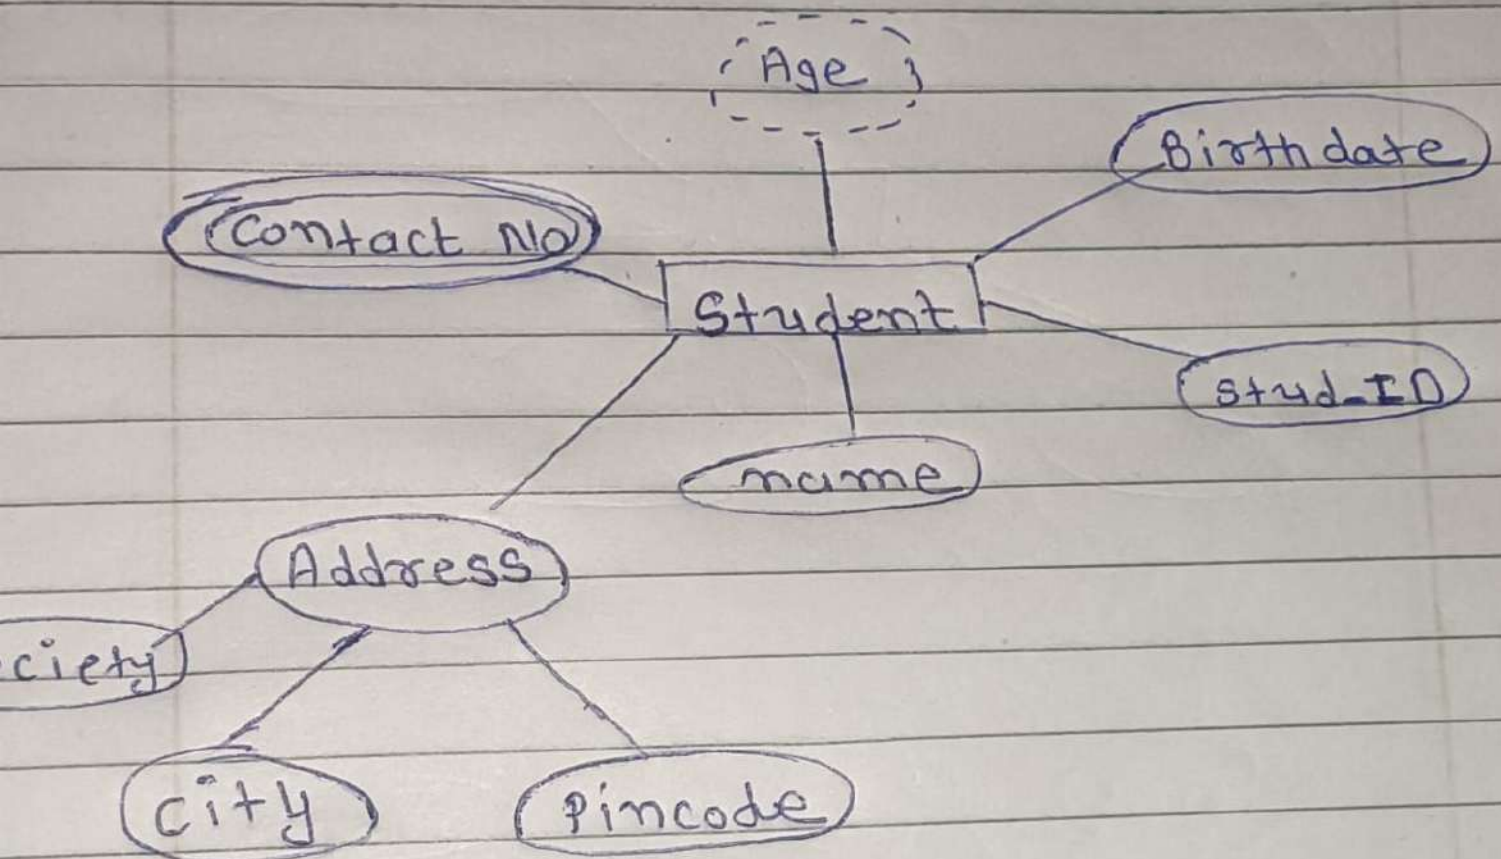 Age
Birthdate
Contact No
Student
Stud_ID
name
Address
ciety
City
Pincode